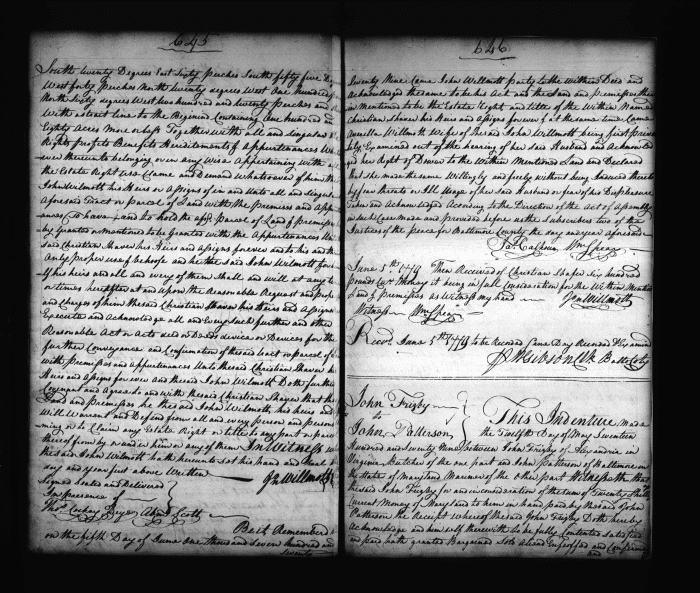 645
South twenty Degrees East Sixty perches South fifty five De
West forty perches North twenty degrees West One hundred
North Sixty degrees West two hundred and twenty perches and
With a strait line to the Begining Containing One hundred and
Eighty Acres more or Less Together with all and singular
Rights profets Benefits Hereditaments & appurtenances
ever thereunto belonging or in any Wise Appertaining with
the Estate Right Use Claim and Demand Whatsoever of him the
John Wilmott his Heirs or Assigns of in and Unto all and Singu
aforesaid tract or parcel of Land with the premises and App
To have and to hold the afsd parcel of Land & premises
by granted or mentioned to be granted with the Appurtenances Un
said Christian Shaver his Heirs and Assigns forever and to his and th
Only proper use & behoof and he the said John Wilmott for
his heirs and all and every of them Shall and will at any ti
or times hereafter at and upon the Reasonable Request and prop
and Charges of him the said Christian Shaver his Heirs and Assigns
Execute and Acknowledge all and Every such further and other
Reasonable Act or Acts deed or Deeds device or Devices for the
further Conveyance and Confirmation of the said tract or parcel of
with premises and appurtenances Unto the said Christian Shaver his
Heirs and Assigns for ever and the said John Wilmott Doth further
Covenant and Agree to and with the said Christian Shaver that the
Land and premises he the said John Wilmott his heirs and
Will Warrant and Defend from all and every person and persons
ming or to Claim any Estate Right or title to any part or parcel
thereof from by or under him or any of them In Witness
the said John Wilmott hath hereunto set his hand and Seal
day and year first above Written Jno Willmott
Signed Sealed and Delivered
In presence of
Thos Cockey Deye Abrm Scott
Be it Remembered
on the fifth Day of June One thousand Seven hundred and
Seventy
646
Seventy Nine Came John Willmott party to the within Deed and
Acknowledged the same to be his Act and the Land and premises there
in Mentioned to be the Estate Right and title of the Within Named
Christian Shaver his Heirs and Assigns forever & at the same time Came
Willmott Wife of the said John Willmott being first priva
tely Examined out of the hearing of her said Husband and Acknowledg
ed her Right of Dower to the Within Mentioned Land and Declared
that She made the same Willingly and freely without being Induced thereto
by fear threats or Ill Usage of her said Husband or fear of his Displeasure
Taken and Acknowledged According to the Direction of the Act of Assembly
in such Case made and provided before us the Subscribers two of the
Justices of the peace for Baltimore County the day and year aforesaid
Jas Calhoun Wm Spear
June 5th 1779 Then Received of Christian Shafer Six hundred
pounds Curt Money it being in full Consideration for the Within Mentioned
Land & premises as Witness my hand Jno Willmott
Witness Wm Spear
Recd June 5th 1779 to be Recorded Same Day Recorded & Examined
Gibson Clk Balto Coty
John Frigby
to
John Patterson
This Indenture made
the Twelfth Day of May Seventeen
Hundred and Seventy Nine between John Frigby of Alexandria in
Virginia Butcher of the one part and John Patterson of Baltimore in
the State of Maryland Mariner of the Other part Witnesseth that
the said John Frigby for and in consideration of the sum of Twenty Shill
Current Money of Maryland to him in hand paid by the said John
Patterson the Receipt whereof the said John Frigby Doth hereby
Acknowledge and himself therewith to be fully Contented Satisfied
and paid hath granted Bargained Sold Aliened Enfeoffed and Confirmed
and